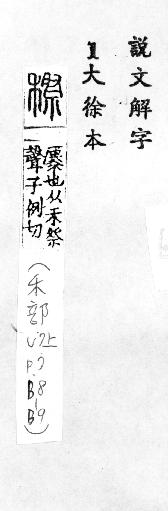 説文解字
1大徐本
穄
穈也从禾祭
聲子例切
(禾部
V.7上
P.7
B8
B9)